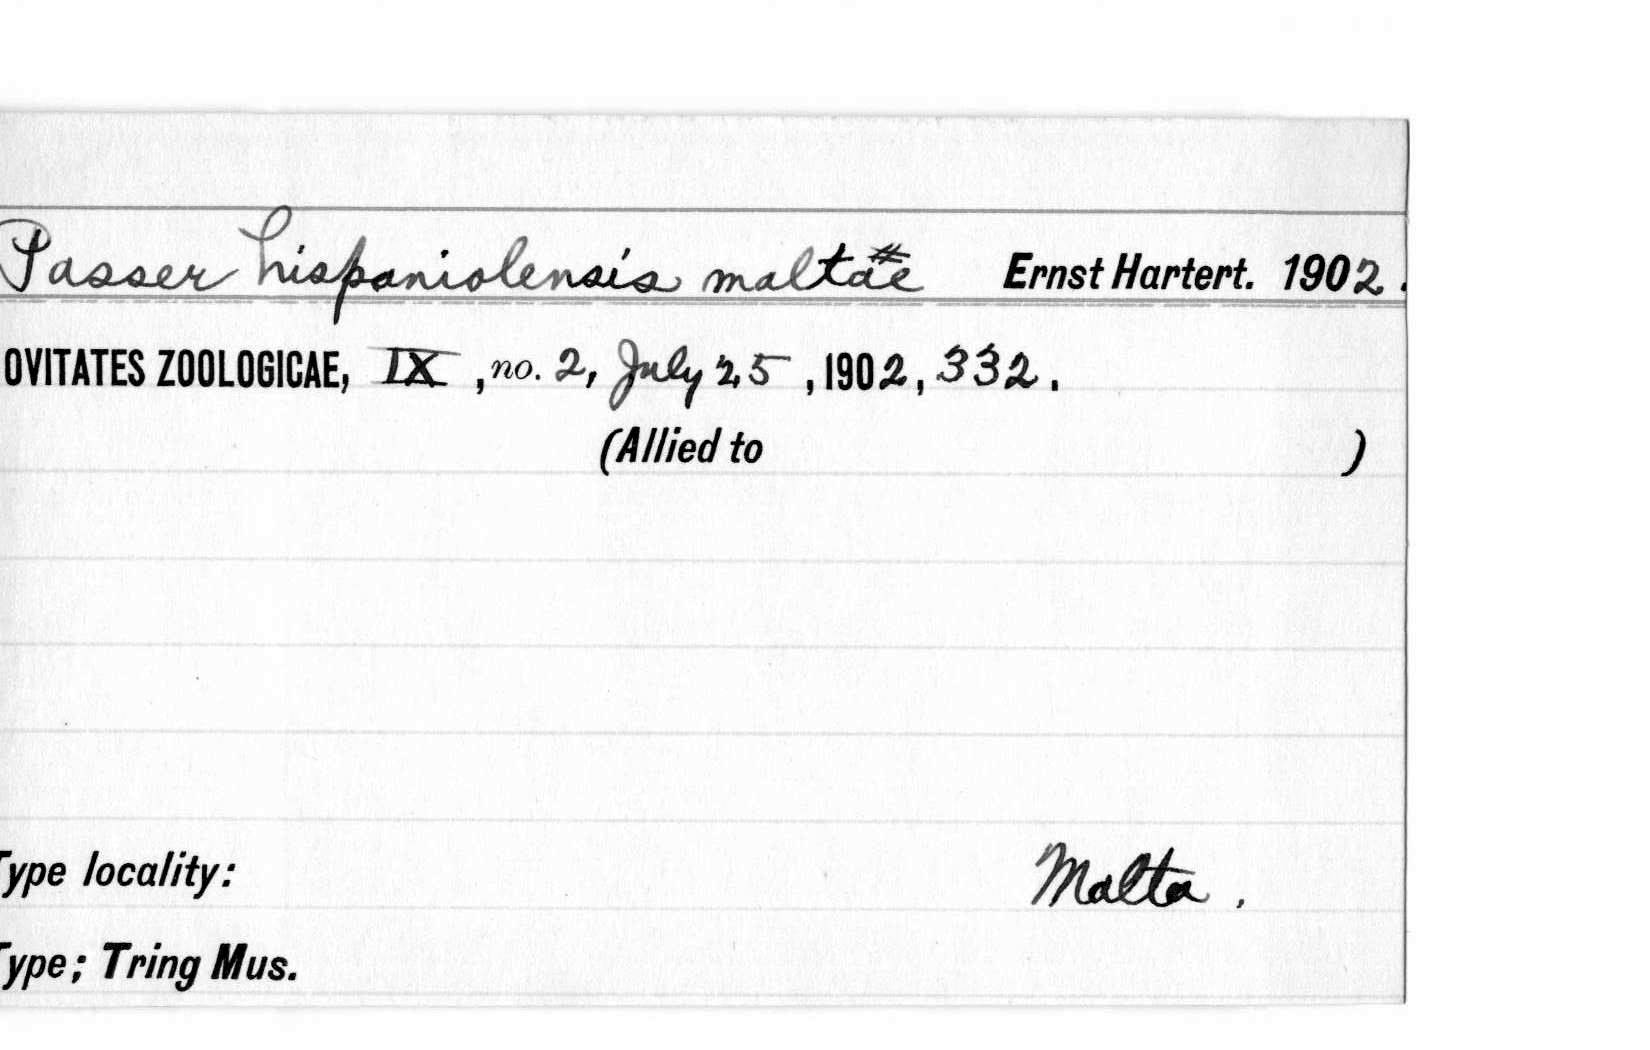 Passer hispaniolensis maltae Ernst Hartert. 1902.
OVITATES ZOOLOGICAE, IX, no. 2, July 25, 1902, 332.
(Allied to )
Type locality: Malta.
Type; Tring Mus.